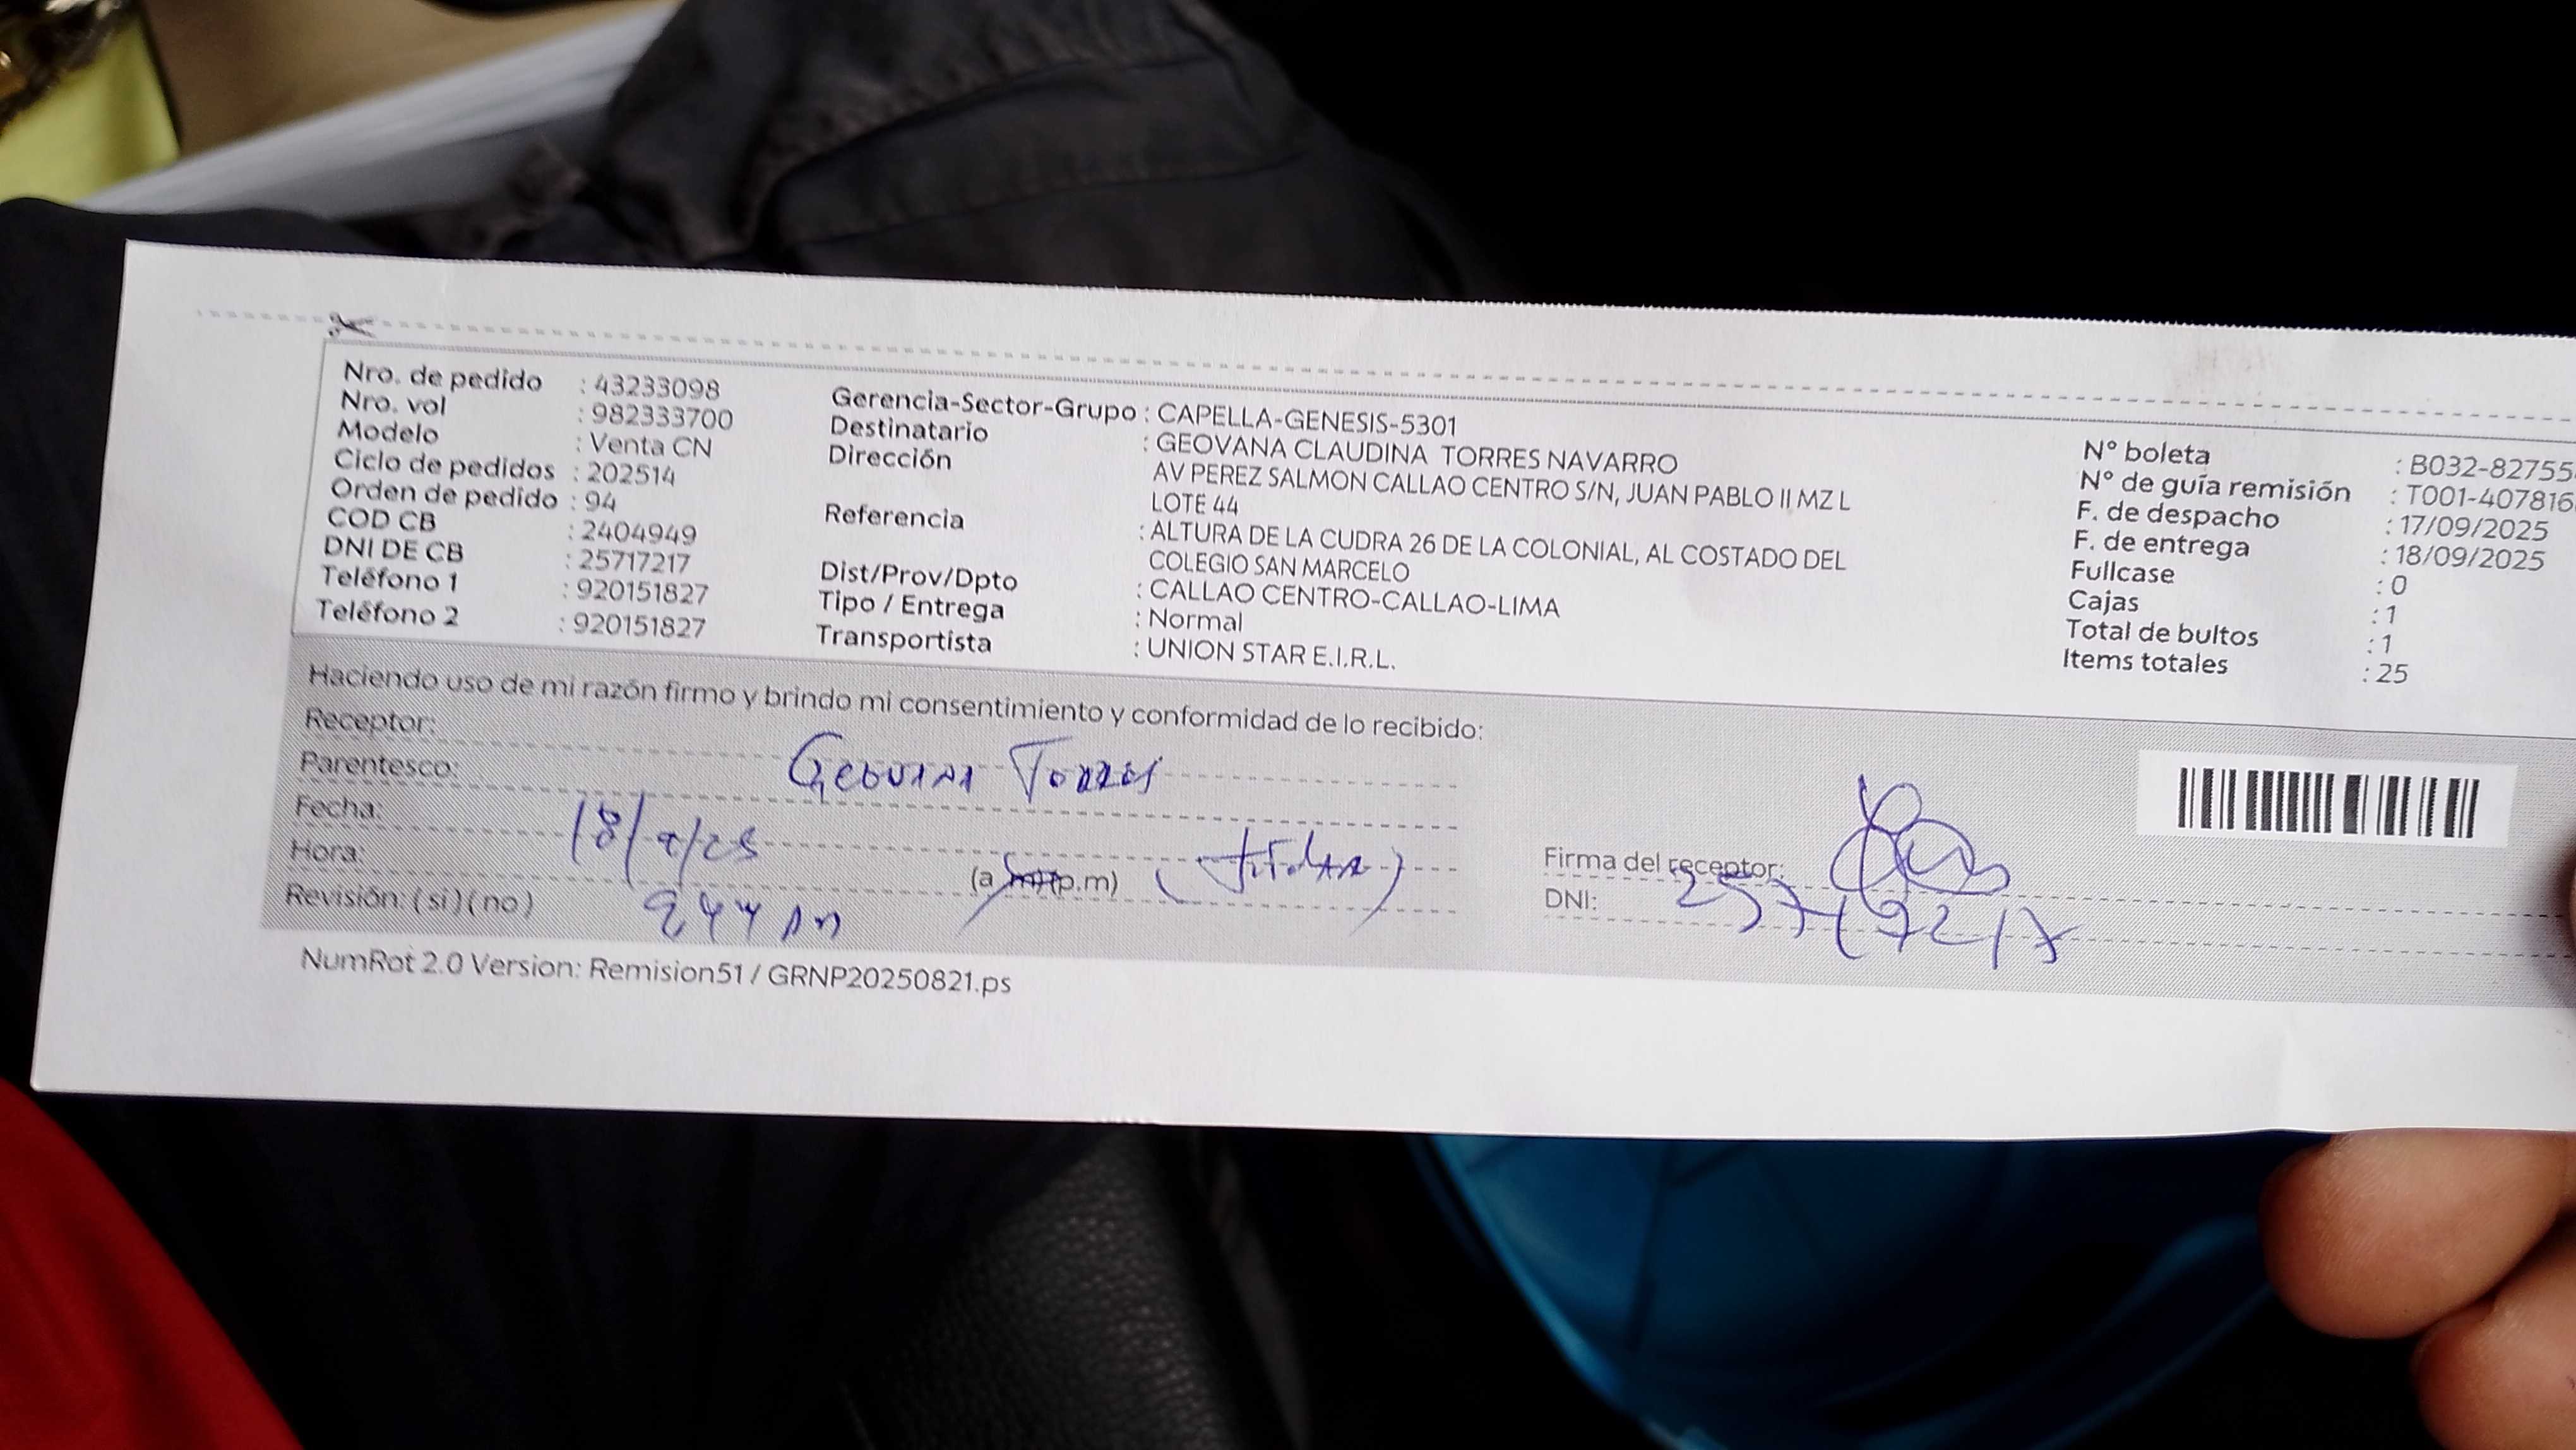 Nro. de pedido : 43233098
Nro. vol : 982333700
Modelo : Venta CN
Ciclo de pedidos : 202514
Orden de pedido : 94
COD CB : 2404949
DNI DE CB : 25717217
Teléfono 1 : 920151827
Teléfono 2 : 920151827
Gerencia-Sector-Grupo : CAPELLA-GENESIS-5301
Destinatario : GEOVANA CLAUDINA TORRES NAVARRO
Dirección AV PEREZ SALMON CALLAO CENTRO S/N, JUAN PABLO II MZ L
LOTE 44
Referencia : ALTURA DE LA CUDRA 26 DE LA COLONIAL, AL COSTADO DEL
COLEGIO SAN MARCELO
Dist/Prov/Dpto : CALLAO CENTRO-CALLAO-LIMA
Tipo / Entrega : Normal
Transportista : UNION STAR E.I.R.L.
Nº boleta : B032-82755
Nº de guía remisión : T001-407816
F. de despacho : 17/09/2025
F. de entrega : 18/09/2025
Fullcase : 0
Cajas : 1
Total de bultos : 1
Items totales : 25
Haciendo uso de mi razón firmo y brindo mi consentimiento y conformidad de lo recibido:
Receptor: Geovana Torres
Parentesco:
Fecha: 18/9/25
Hora: (a.m)(p.m) (titular)
Revisión: (si)(no)
Firma del receptor:
DNI: 25717217
NumRot 2.0 Version: Remision51 / GRNP20250821.ps